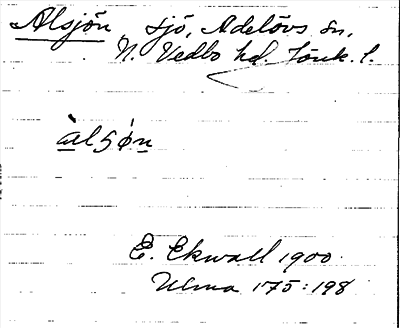 Alsjön, sjö, Adelövs sn,
N. Vedbo hd. Jönk. l.
àlsø̀n
E. Ekwall 1900.
Ulma 175:198